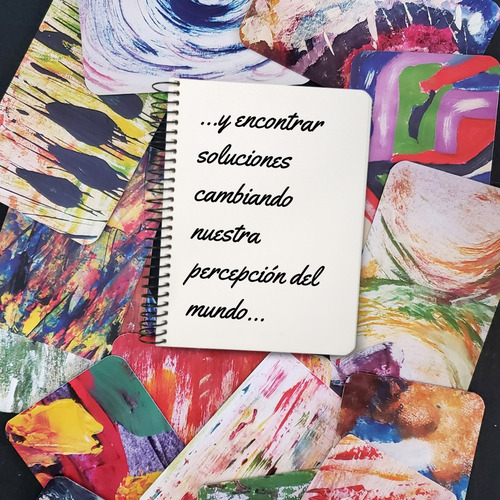 ...y encontrar
soluciones
cambiando
nuestra
percepción del
mundo...